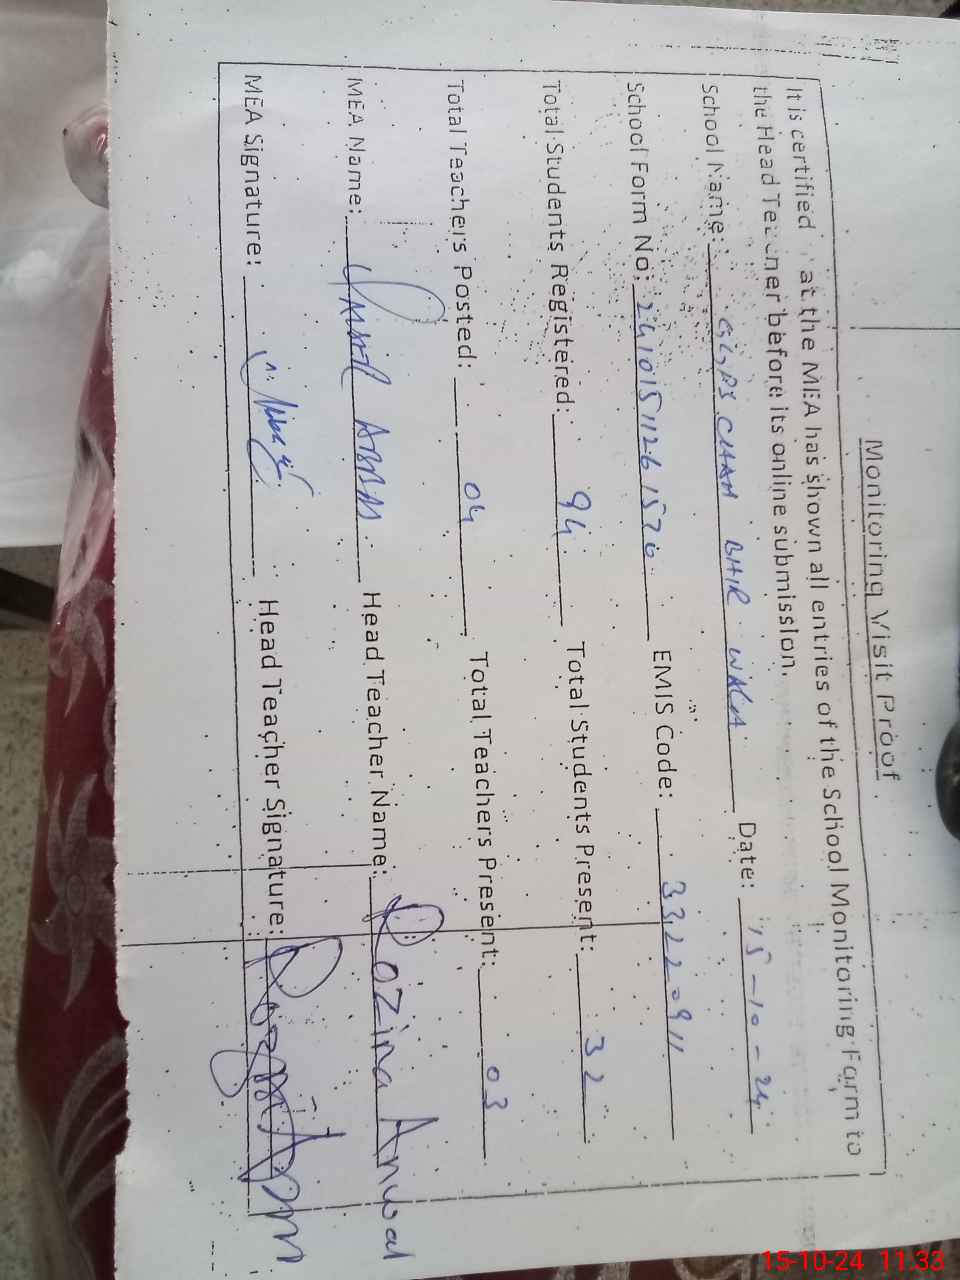 Monitoring Visit Proof
It is certified at the MEA has shown all entries of the School Monitoring Form to
the Head Teacher before its online submission.
School Name: GGPS CHAH BHIR WALA Date: 15-10-24
School Form No: EMIS Code: 33220911
Total Students Registered: 94 Total Students Present: 32
Total Teachers Posted: 04 Total Teachers Present: 03
MEA Name: Head Teacher Name: Rozina Anwar
MEA Signature: Head Teacher Signature:
15-10-24 11:33